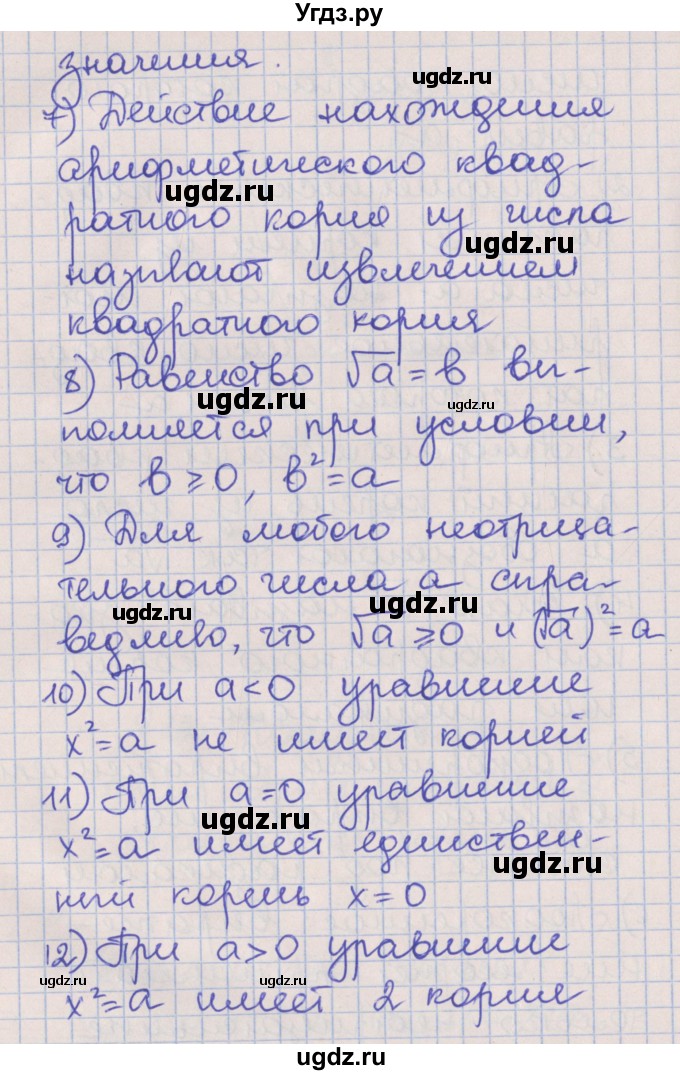 Угдз.ру
значения.
ugdz.ru
7) Действие нахождения
арифметического квад-
ugdz.ru
ратного корня из числа
ugdz.ru
называют извлечением
квадратного корня
8) Равенство √a = b вы-
ugdz.ru
ugdz.ru
полняется при условии,
что b ≥ 0, b² = a
9) Для любого неотрица-
тельного числа a спра-
ugdz.ru
ugdz.ru
ведливо, что √a ≥ 0 и (√a)² = a
10) При a < 0 уравнение
x² = a не имеет корней
11) При a = 0 уравнение
ugdz.ru
x² = a имеет единствен-
ugdz.ru
ный корень x = 0
12) При a > 0 уравнение
ugdz.ru
ugdz.ru
x² = a имеет 2 корня
ugdz.ru